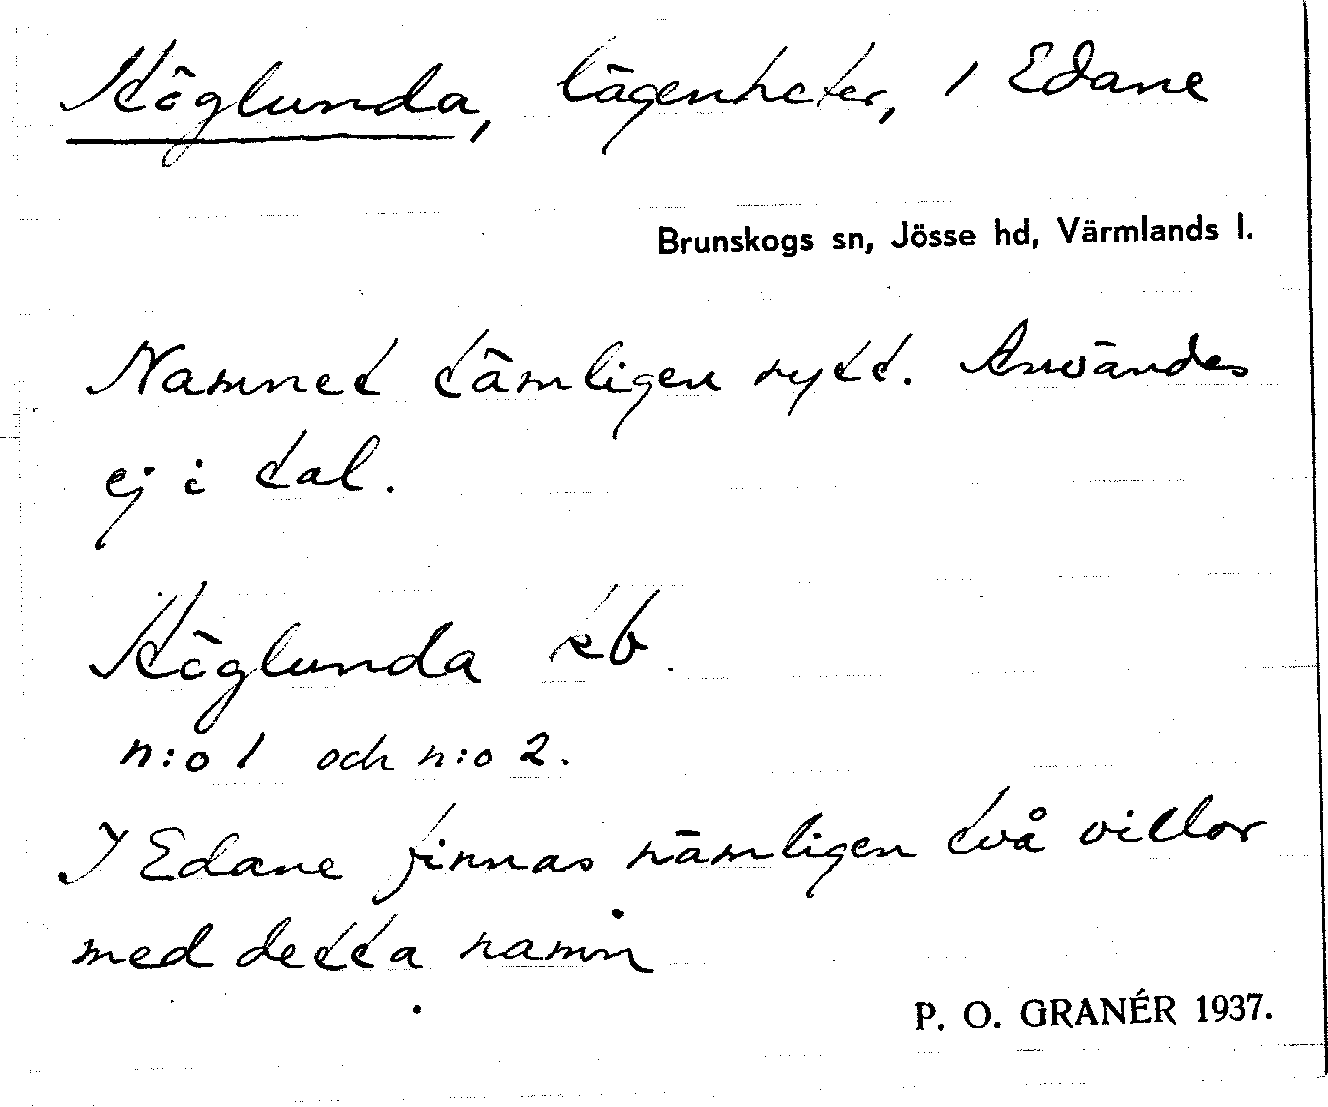 Höglunda, lägenheter, i Edane
Brunskogs sn, Jösse hd, Värmlands l.
Namnet tämligen nytt. Användes
ej i tal.
Höglunda kb.
n:o 1 och n:o 2.
I Edane finnas nämligen två villor
med detta namn
P. O. GRANÉR 1937.